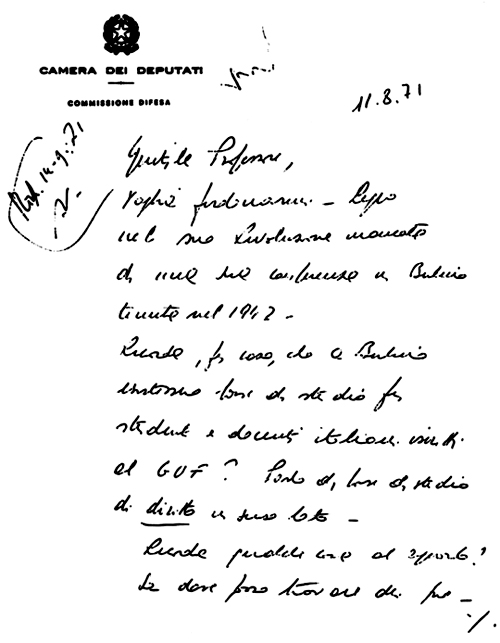 CAMERA DEI DEPUTATI
COMMISSIONE DIFESA
11.8.71
Gentile Professore,
Voglia perdonarmi - Leggo
nel suo Rivoluzione mancata
di una sua conferenza a Berlino
tenuta nel 1942 -
Ricorda, per caso, che a Berlino
esistessero borse di studio per
studenti e docenti italiani iscritti
al GUF? Parlo di borse di studio
di diritto in senso lato -
Ricorda qualche cosa al riguardo?
Se dove posso trovare dei
./.